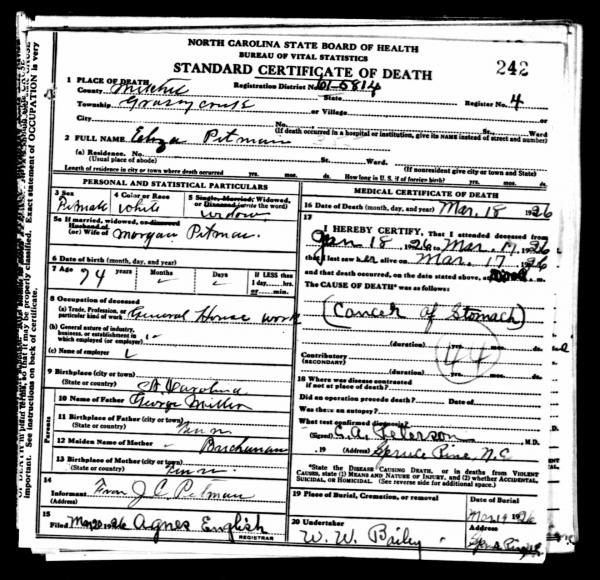 NORTH CAROLINA STATE BOARD OF HEALTH
BUREAU OF VITAL STATISTICS
STANDARD CERTIFICATE OF DEATH
242
1 PLACE OF DEATH
County Mitchel Registration District No. 61-5814
State
Township Grassy creek or Village Register No. 4 or
City No. St. Ward
(If death occurred in a hospital or institution, give its NAME instead of street and number)
2 FULL NAME Eliza Pitman
(a) Residence. No. St. Ward.
(Usual place of abode) (If nonresident give city or town and State)
Length of residence in city or town where death occurred yrs. mos. ds. How long in U. S. if of foreign birth? yrs. mos. ds.
PERSONAL AND STATISTICAL PARTICULARS
3 Sex 4 Color or Race 5 Single, Married, Widowed, or Divorced (write the word)
Female white widow
5a If married, widowed, or divorced
Husband of
(or) Wife of Morgan Pitman.
6 Date of birth (month, day, and year)
7 Age 74 years Months Days If LESS than
1 day, hrs.
or min.
8 Occupation of deceased
(a) Trade, Profession, or
particular kind of work General House work
(b) General nature of industry,
business, or establishment in
which employed (or employer)
(c) Name of employer
9 Birthplace (city or town)
(State or country) N. Carolina
10 Name of Father George Miller
11 Birthplace of Father (city or town)
(State or country) Tenn.
12 Maiden Name of Mother Buchanan
13 Birthplace of Mother (city or town)
(State or country) Tenn.
Parents
14
Informant J C Pitman
(Address)
15
Filed Mar 20 1926 Agnes English
REGISTRAR
MEDICAL CERTIFICATE OF DEATH
16 Date of Death (month, day, and year) Mar. 18 1926
17
I HEREBY CERTIFY, That I attended deceased from
Jan 18, 1926, Mar. 17, 1926
that I last saw her alive on Mar. 17 1926
and that death occurred, on the date stated above, at m.
The CAUSE OF DEATH* was as follows:
(Cancer of Stomach)
44
(duration) yrs. mos. ds.
Contributory
(SECONDARY)
(duration) yrs. mos. ds.
18 Where was disease contracted
if not at place of death?
Did an operation precede death? Date of
Was there an autopsy?
What test confirmed diagnosis
(Signed) C. A. Peterson M.D.
, 19 (Address) Spruce Pine, N.C
*State the DISEASE CAUSING DEATH, or in deaths from VIOLENT
CAUSES, state (1) MEANS AND NATURE OF INJURY, and (2) whether ACCIDENTAL,
SUICIDAL, or HOMICIDAL. (See reverse side for additional space.)
19 Place of Burial, Cremation, or removal Date of Burial
Mar 19 1926
20 Undertaker Address
W. W. Baily
important. See instructions on back of certificate.
so that it may be properly classified. Exact statement of OCCUPATION is very